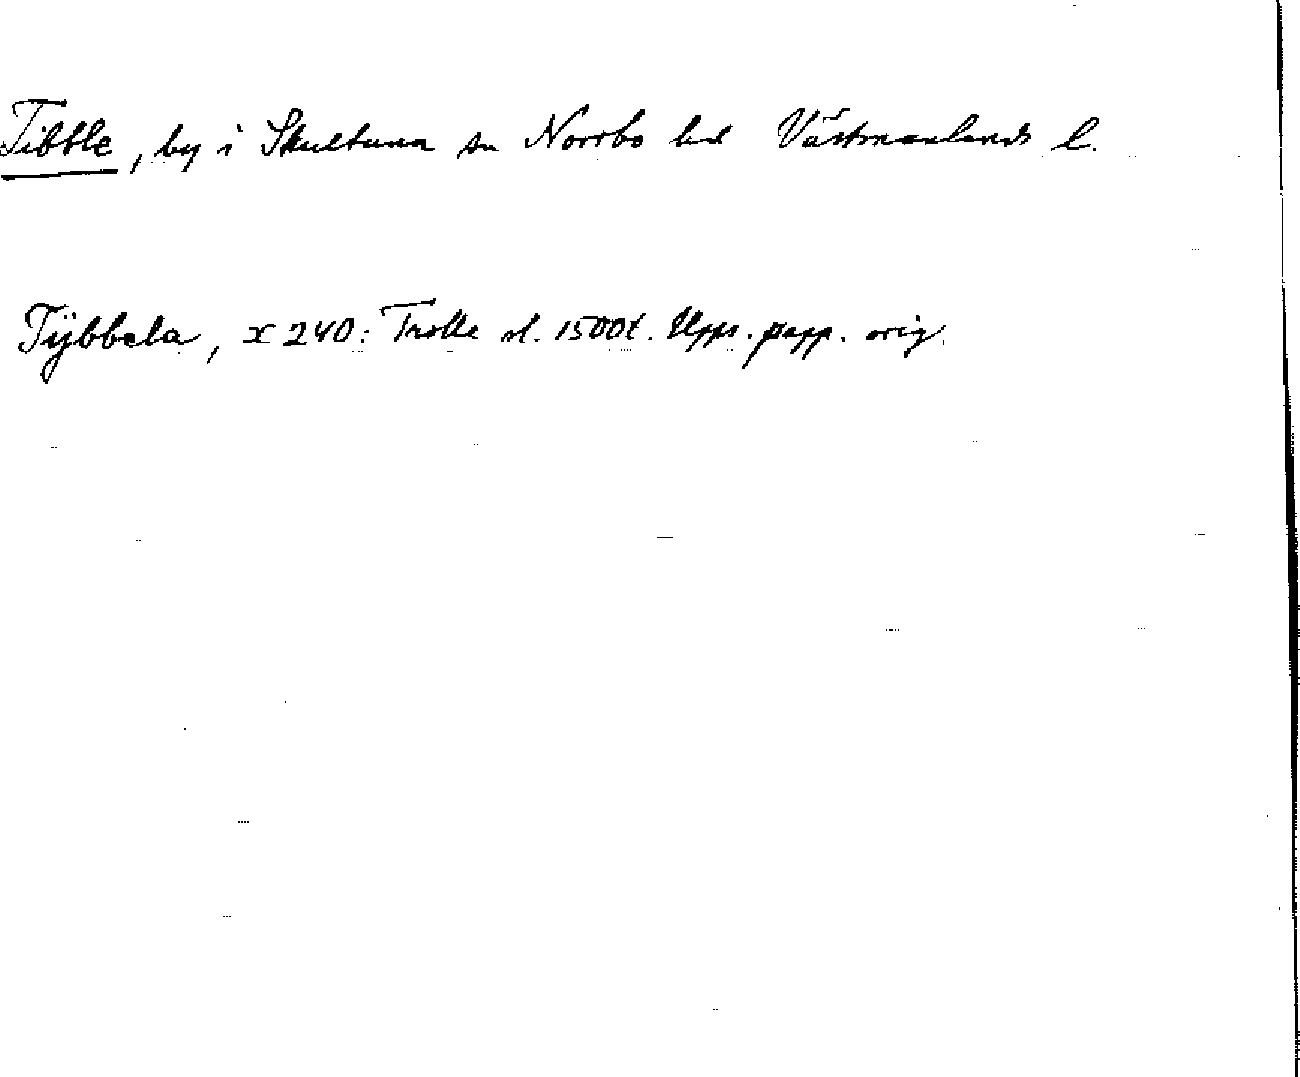 Tibble, by i Skultuna sn Norrbo hd Västmanlands l.
Tÿbbela, x 240: Trolle sl. 1500t. Upps. papp. orig.